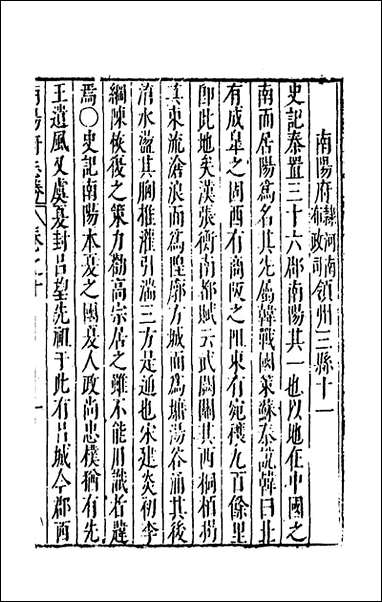 南陽府隸河南布政司領州三縣十一
史記秦置三十六郡南陽其一也以地在中國之
南而居陽爲名其先屬韓戰國策蘇秦說韓曰北
有成臯之固西有商阪之
東有宛穰
九百餘里
即此地矣漢張衡南都賦云武闕關其西桐柏揭
其東流滄浪而爲隍廓方城而爲墉湯谷涌其後
淯水盪其胸推淮引湍三方是通也宋建炎初李
綱陳恢復之策力勸高宗居之雖不能用識者韙
焉○史記南陽本夏之國夏人政尚忠樸猶有先
王遺風又虞夏封呂望先祖于此有呂城今郡西